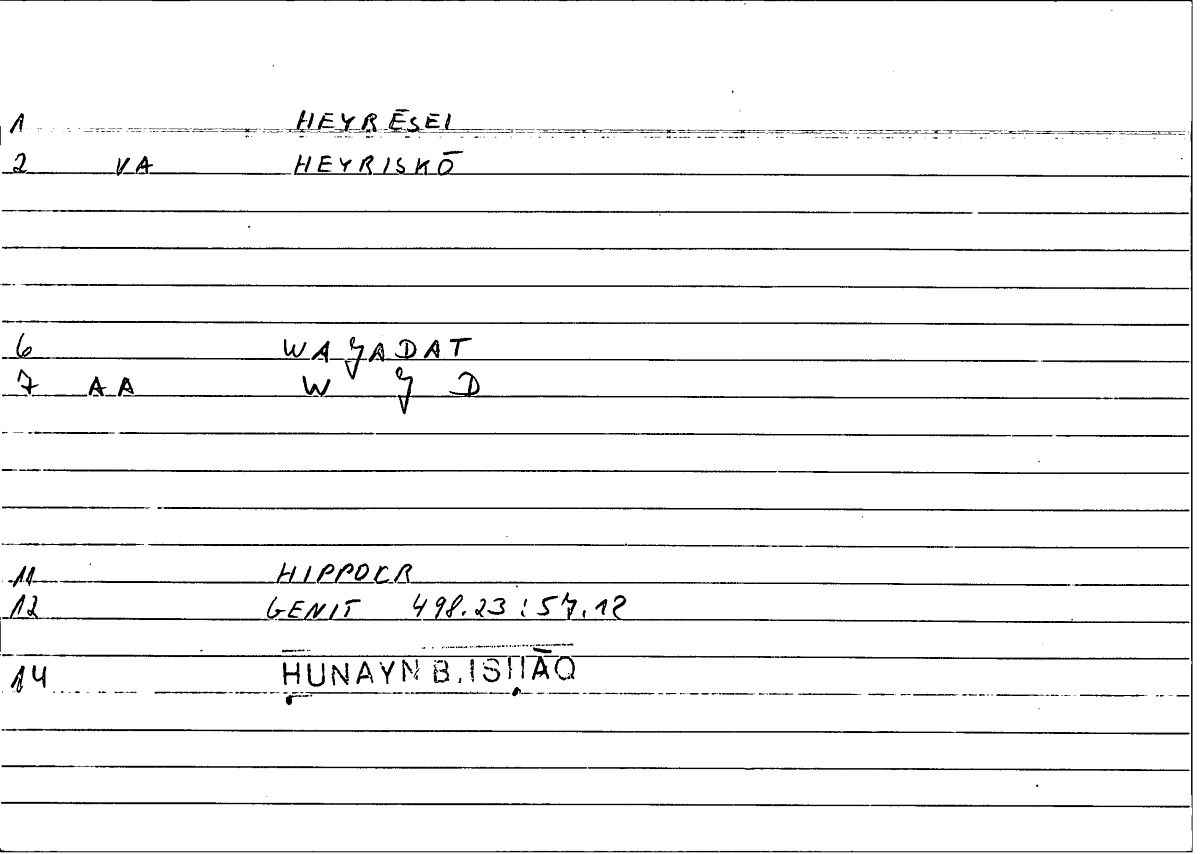 1 HEYRĒSEI
2 VA HEYRISKŌ
6 WAJADAT
7 AA W J D
11 HIPPOCR
12 GENIT 498.23 : 57.12
14 ḤUNAYN B. ISḤĀQ